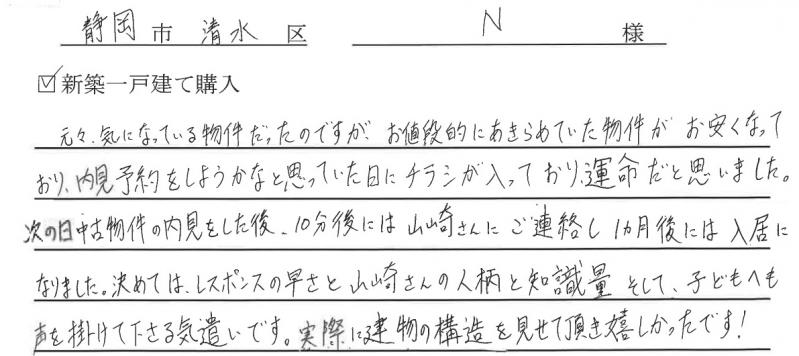 静岡市 清水 区 N 様
☑新築一戸建て購入
元々、気になっている物件だったのですが、お値段的にあきらめていた物件が お安くなって
おり、内見予約をしようかなと思っていた日にチラシが入っており、運命だと思いました。
次の日中古物件の内見をした後、10分後には 山崎さんに ご連絡し 1カ月後には 入居に
なりました。決めては、レスポンスの早さと 山崎さんの人柄と知識量 そして、子どもへも
声を掛けて下さる気遣いです。実際に建物の構造を見せて頂き嬉しかったです!